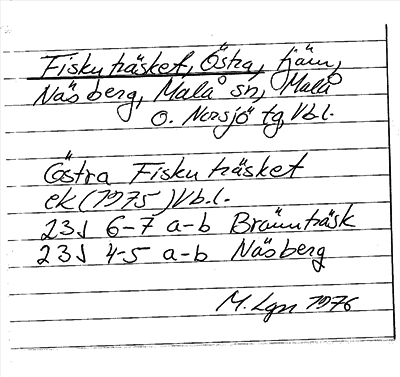 Fiskuträsket, Östra, tjärn,
Näsberg, Malå sn, Malå
o. Norsjö tg, Vb.l.
Östra Fiskuträsket
ek (1975) Vb.l.
23J 6-7 a-b Brännträsk
23J 4-5 a-b Näsberg
M. Lgn 1976